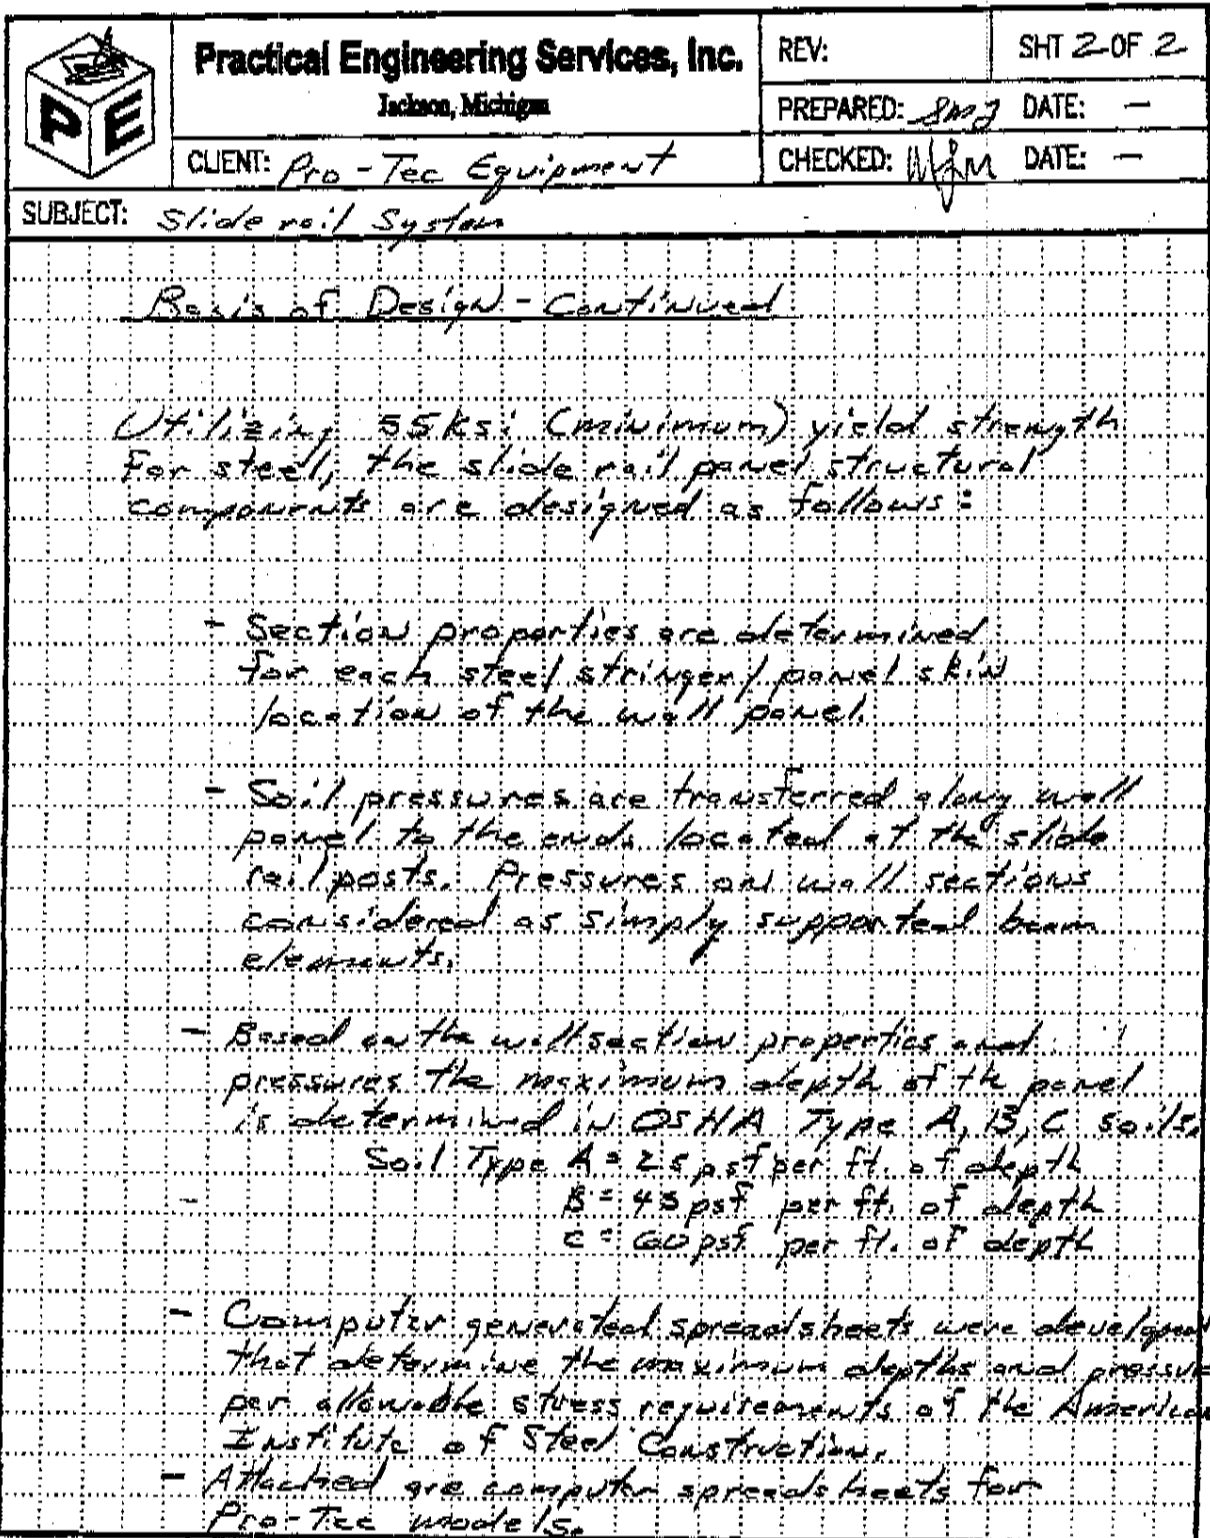 Practical Engineering Services, Inc.
Jackson, Michigan
REV:
SHT 2 OF 2
PREPARED: SMJ DATE: —
CLIENT: Pro-Tec Equipment
CHECKED: DATE: —
SUBJECT: Slide rail System
PE
Basis of Design - Continued
Utilizing 55 ksi (minimum) yield strength
For steel, the slide rail panel structural
components are designed as follows:
- Section properties are determined
for each steel stringer/panel skin
location of the wall panel.
- Soil pressures are transferred along wall
panel to the ends located at the slide
rail posts. Pressures on wall sections
considered as simply supported beam
elements.
- Based on the wall section properties and
pressures the maximum depth of the panel
is determined in OSHA Type A, B, C soils.
Soil Type A = 25 psf per ft. of depth
B = 45 psf per ft. of depth
C = 60 psf per ft. of depth
- Computer generated spreadsheets were developed
that determine the maximum depths and pressure
per allowable stress requirements of the American
Institute of Steel Construction.
- Attached are computer spreadsheets for
Pro-Tec models.